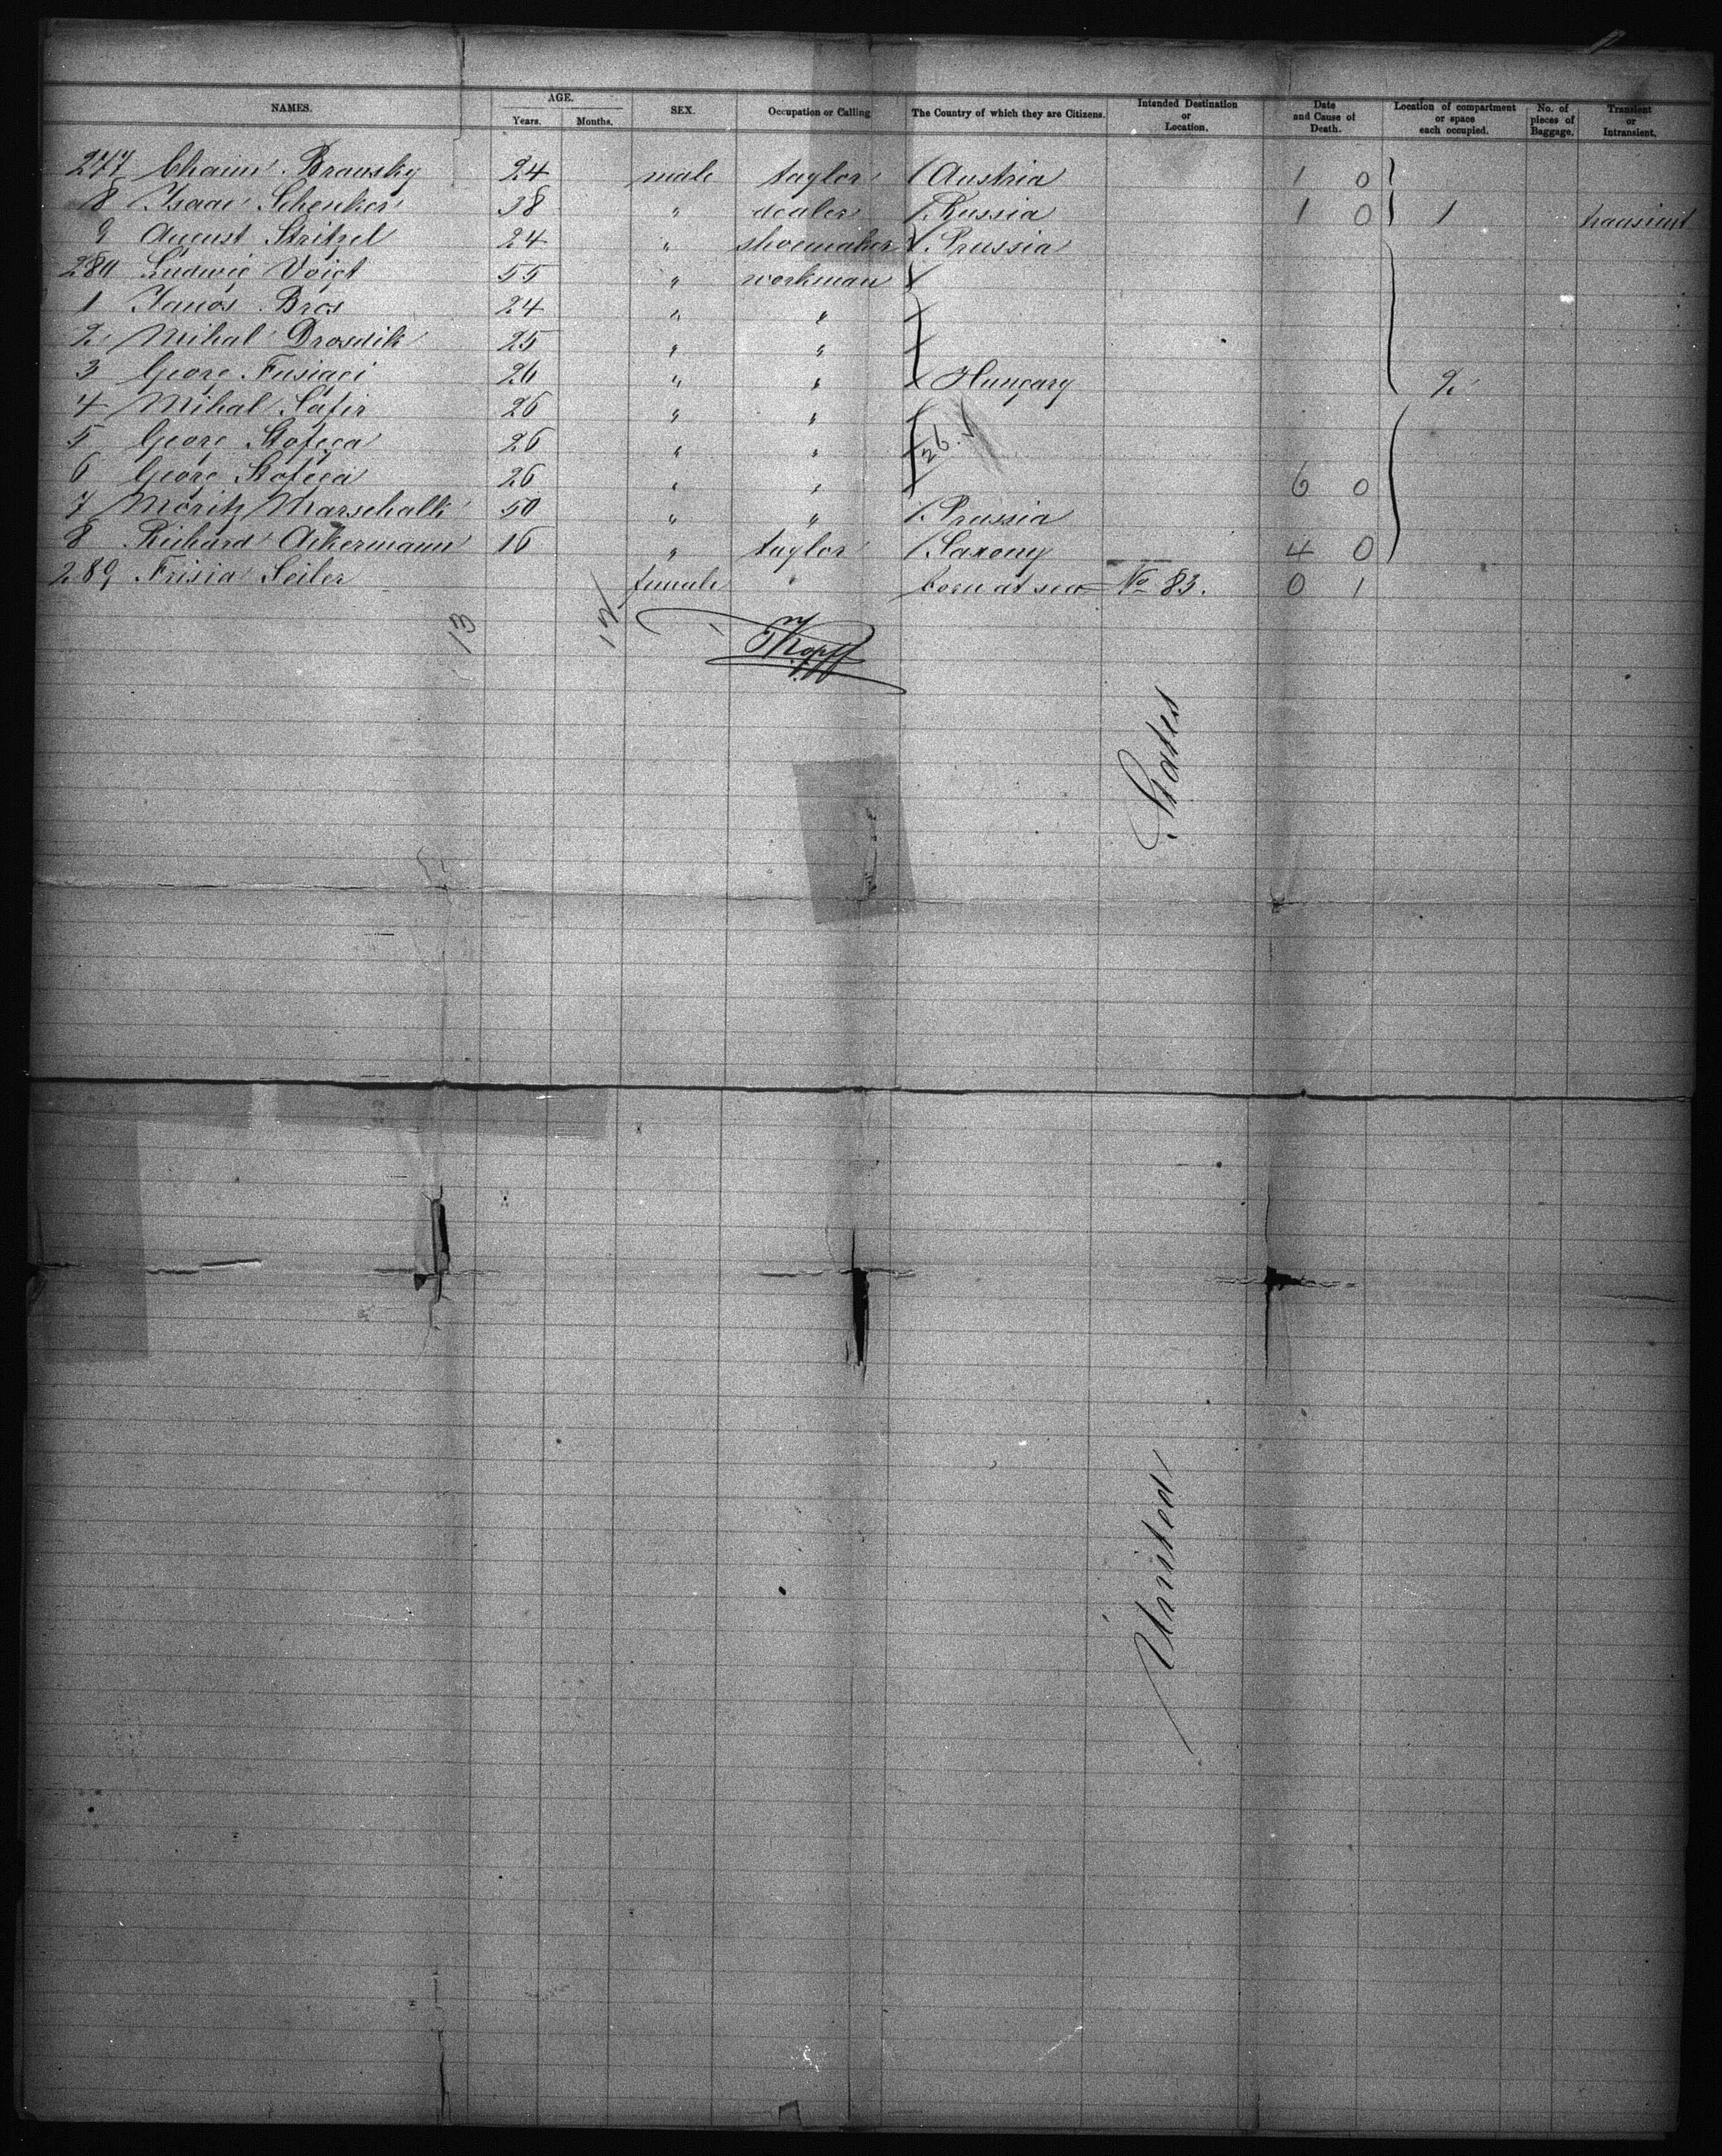 NAMES. AGE. Years. Months. SEX. Occupation or Calling The Country of which they are Citizens. Intended Destination or Location. Date and Cause of Death. Location of compartment or space each occupied. No. of pieces of Baggage. Transient or Intransient.
277 Chaim Bransky 24 male taylor Austria 1 0
8 Isaac Schenker 38 " dealer Russia 1 0 1 transient
9 August Stritzel 24 " shoemaker Prussia
280 Ludwig Voigt 55 " workman
1 Janos Bros 24 " "
2 Mihal Drosdik 25 " "
3 Georg Fusiaci 26 " " Hungary 2
4 Mihal Safir 26 " "
5 Georg Stofega 26 " " 26.
6 Georg Stofega 26 " " 6 0
7 Moritz Marschalk 50 " " Prussia
8 Richard Ackermann 16 " taylor Saxony 4 0
289 Frisia Seiler female " born at sea No 83. 0 1
13 12
Kopff
United States